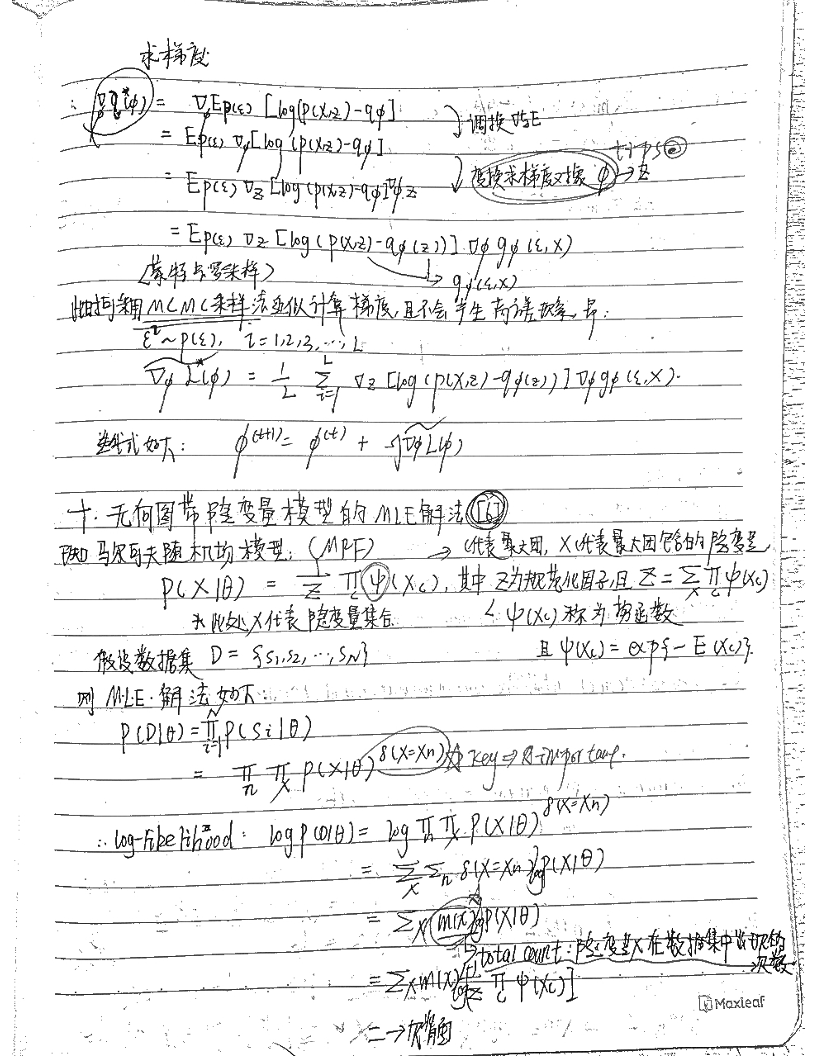 求梯度
∴ ∇φ L(φ) = ∇φ Ep(ε) [log(p(x,z)-qφ]
= Ep(ε) ∇φ[log (p(x,z)-qφ] 调换∇与E
= Ep(ε) ∇z [log (p(x,z)-qφ]∇φ z 变换求梯度对象 φ→z tips
= Ep(ε) ∇z [log (p(x,z)-qφ(z))] ∇φ gφ(ε,x)
(蒙特卡罗采样) → gφ(ε,x)
此时可采用MCMC采样法近似计算梯度,且不会产生高方差现象,即:
ε^i ~ p(ε), i=1,2,3,…,L
∇φ L(φ) = 1/L Σ_{i=1}^{L} ∇z [log (p(x,z)-qφ(z))] ∇φ gφ(ε,x).
迭代式如下: φ^(t+1) = φ^(t) + ∇φ L(φ)
十. 无向图带隐变量模型的MLE解法 [6]
马尔可夫随机场模型: (MRF) → C代表最大团, X代表最大团包含的隐变量
P(X|θ) = 1/Z ∏_c ψ(Xc), 其中 Z为规范化因子,且 Z = Σ_x ∏_c ψ(Xc)
此处X代表隐变量集合 ψ(Xc)称为势函数
假设数据集 D = {S1,S2,…,SN} 且 ψ(Xc) = exp{-E(Xc)}.
则 MLE 解法如下
P(D|θ) = ∏_{i=1}^{N} P(Si|θ)
= ∏_n ∏_x P(X|θ)^{δ(X=Xn)} key ⇒ important.
∴ log-likelihood: log P(D|θ) = log ∏_n ∏_x P(X|θ)^{δ(X=Xn)}
= Σ_x Σ_n δ(X=Xn) log P(X|θ)
= Σ_x m(x) log P(X|θ)
→ total count: 隐变量X在数据集中出现的次数
= Σ_x m(x) log[1/Z ∏_c ψ(Xc)]
=→次背面
Maxleaf